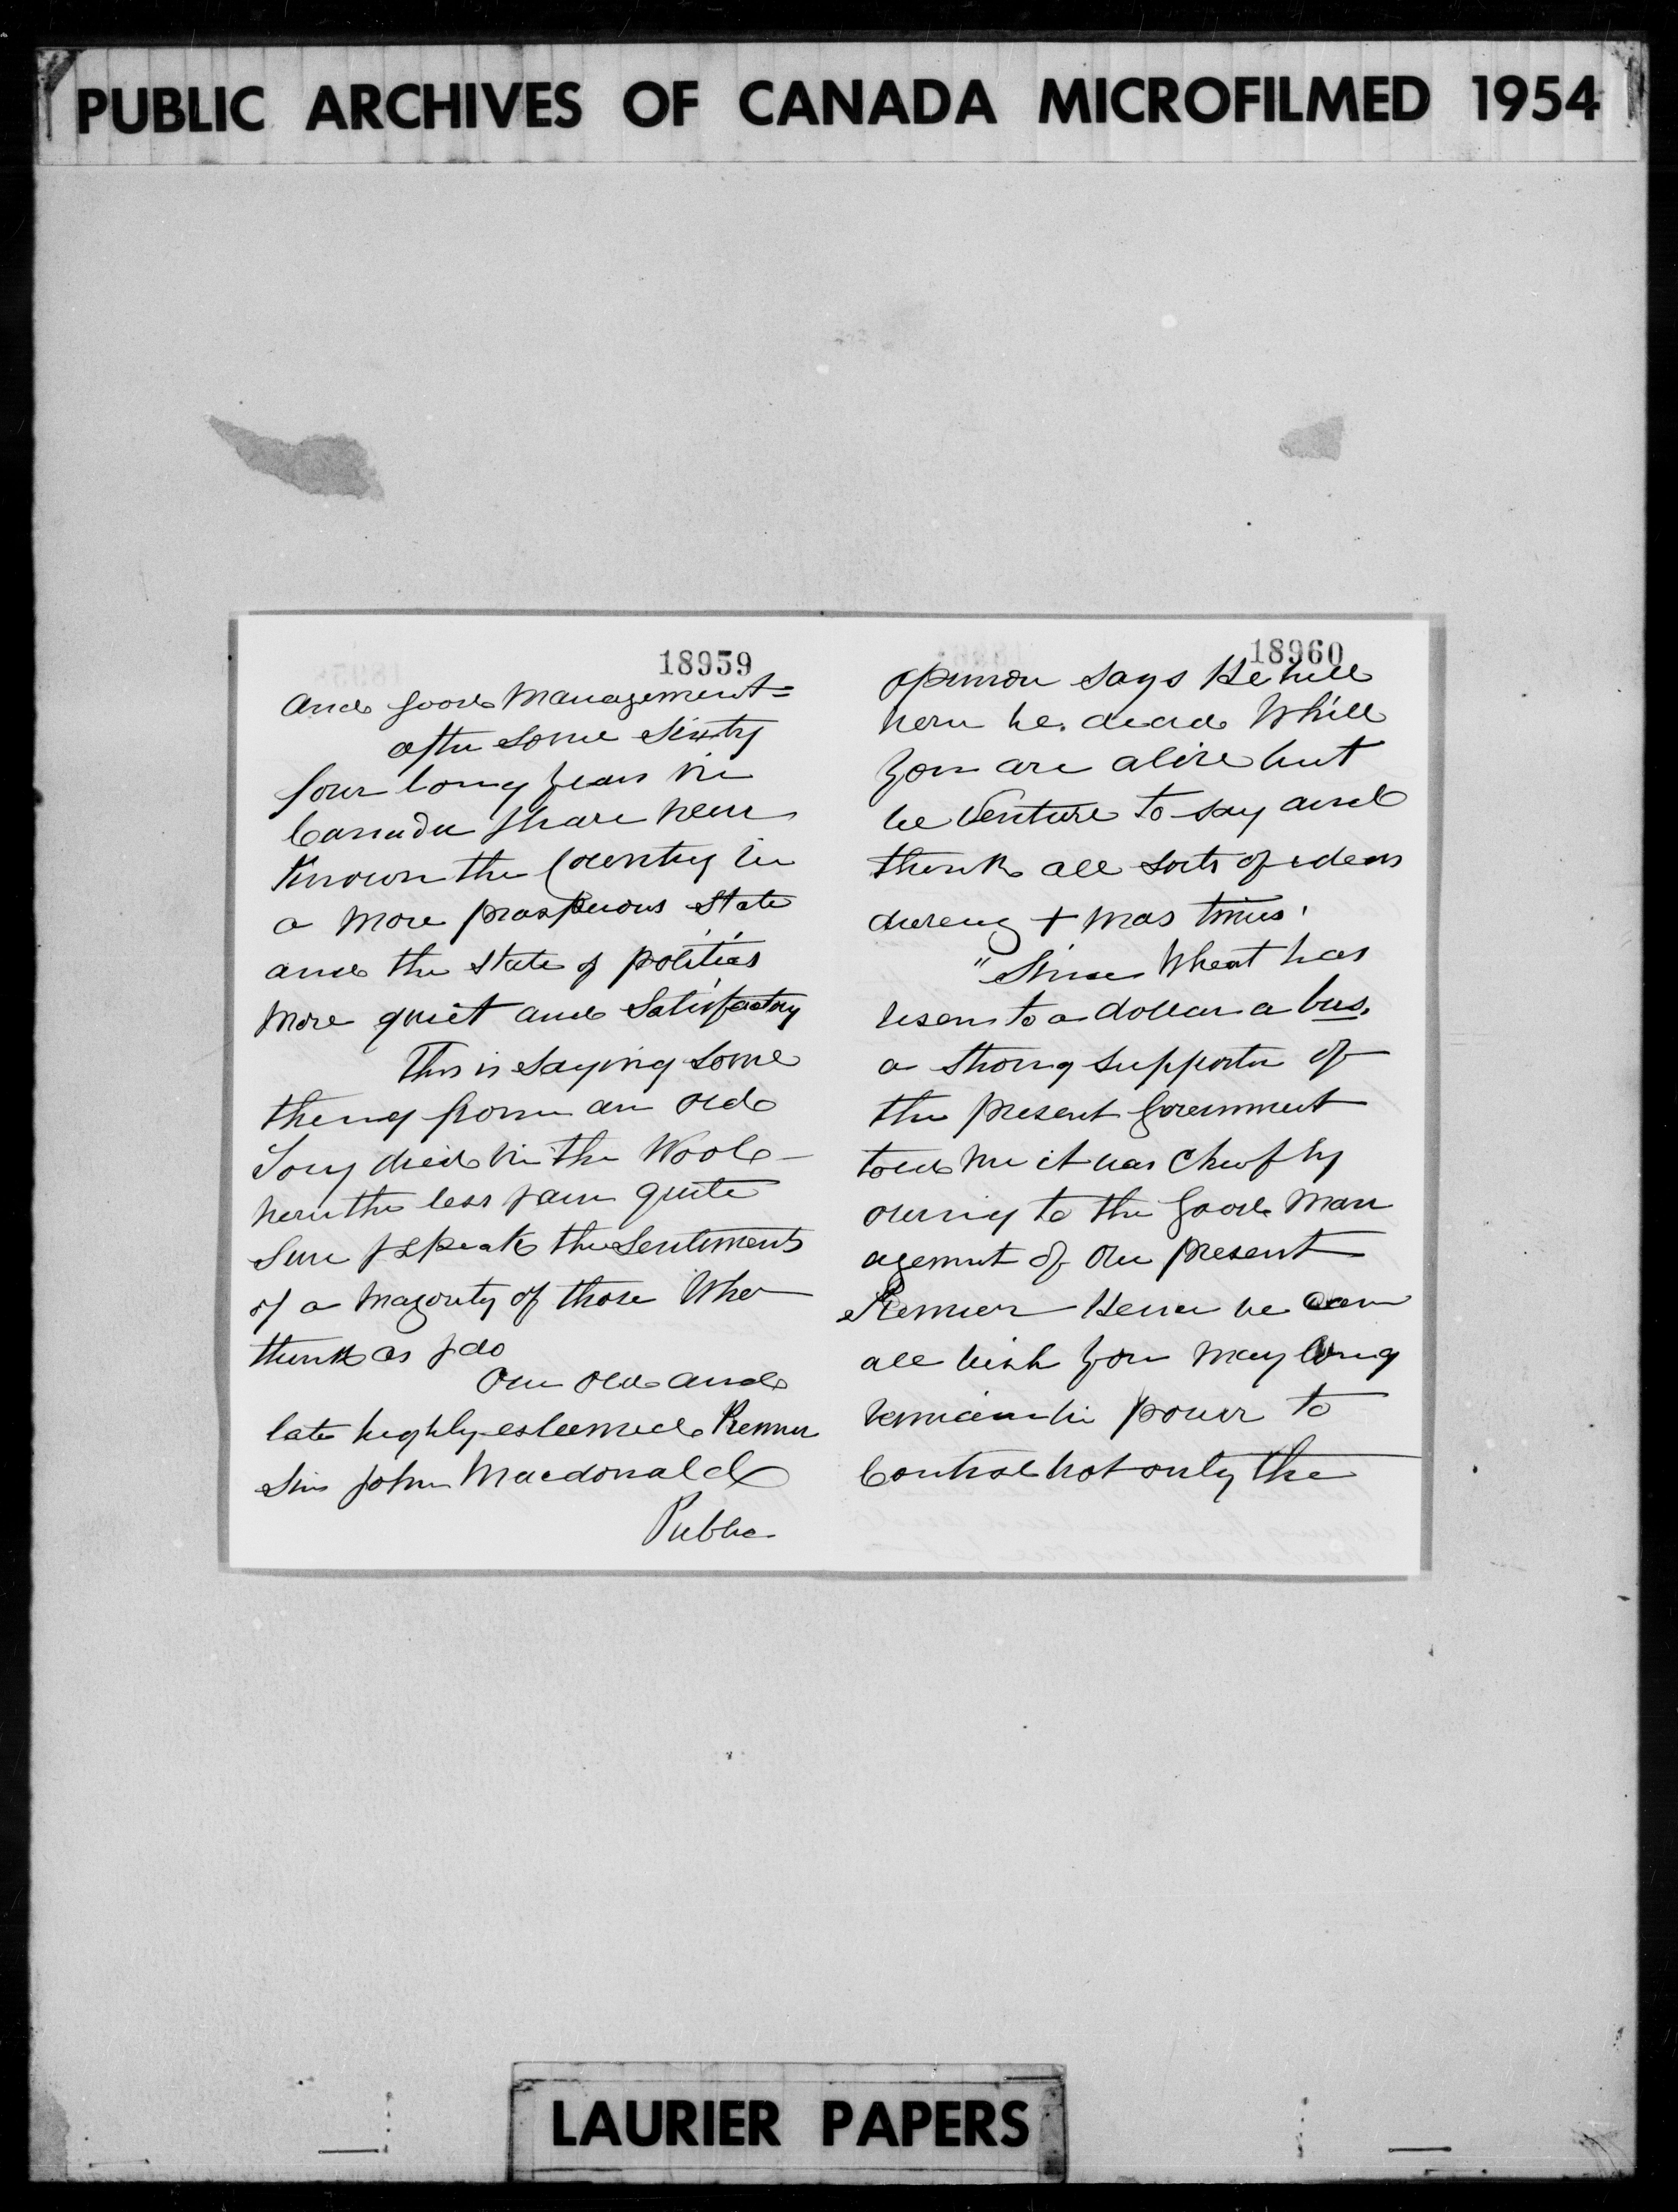 PUBLIC ARCHIVES OF CANADA MICROFILMED 1954
18959
and good management=
after some sixty
four long years in
Canada I have never
known the Country in
a more prosperous state
and the state of politics
more quiet and Satisfactory
This is saying some
thing from an old
Tory died in the Wool—
never the less I am quite
sure I speak the sentiments
of a majority of those Who
think as I do
Our old and
late highly esteemed Premier
Sir John Macdonald
Public
18960
opinion says He will
never be dead While
you are alive but
we Venture to say and
think all sorts of ideas
during Xmas times.
"Since Wheat has
risen to a dollar a bus.
a strong supporter of
the present Government
told me it was chiefly
owing to the good Man
agement of our present
Premier Hence we can
all wish you may long
remain in power to
Control not only the
LAURIER PAPERS